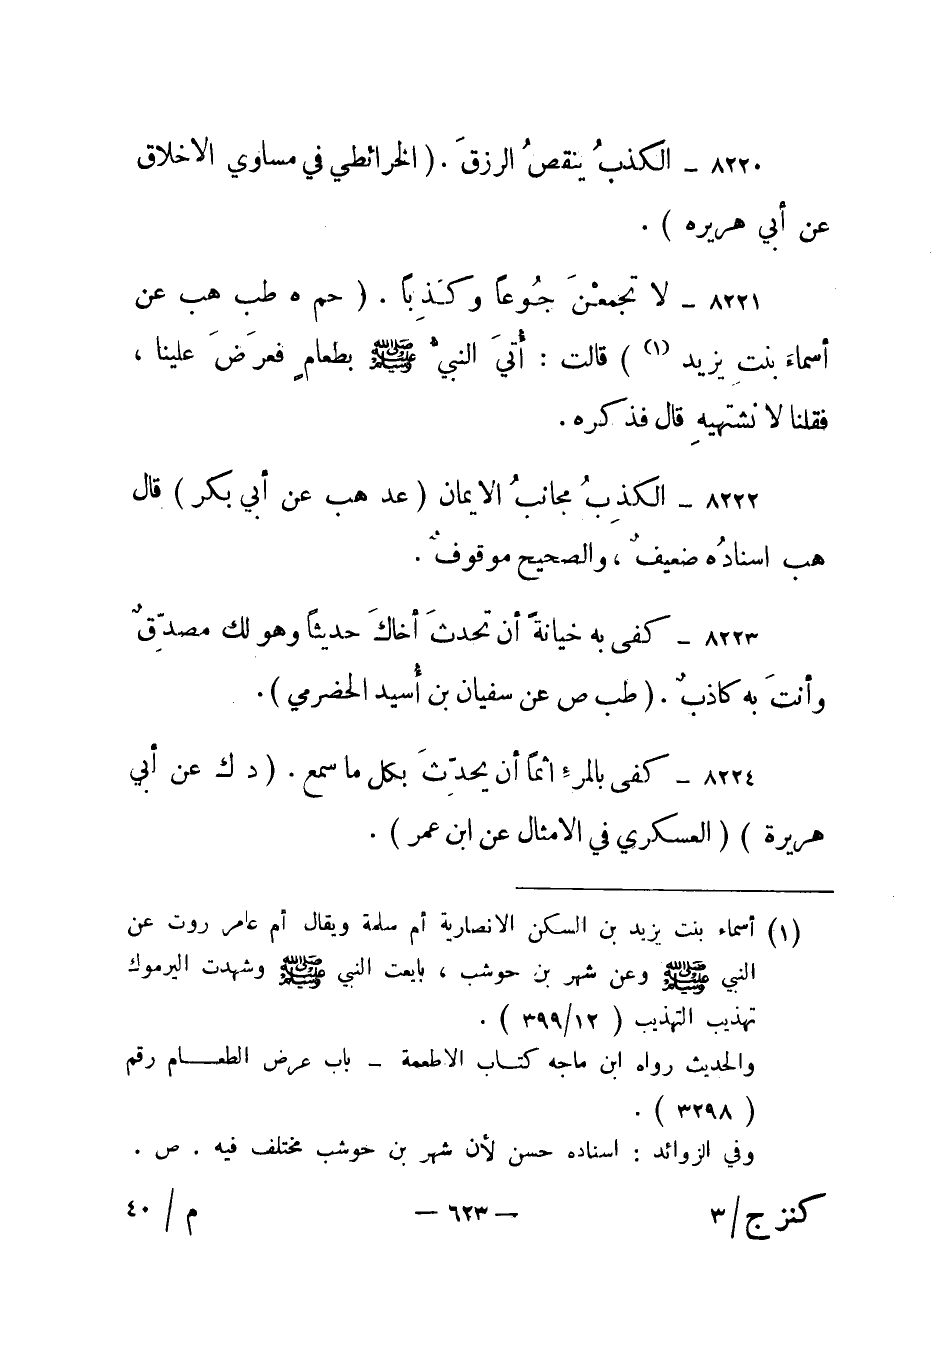 ٨٢٢٠ – الكذبُ ينقصُ الرزقَ . ( الخرائطي في مساوي الاخلاق
عن أبي هريره ) .
٨٢٢١ – لا تجمعْنَ جُوعاً وكَذِباً . ( حم ه طب هب عن
أسماءَ بنتِ يزيد (١) ) قالت : أُتيَ النبيُّ ﷺ بطعامٍ فعرَضَ علينا ،
فقلنا لا نشتهيهِ قال فذكره .
٨٢٢٢ – الكذِبُ مجانبُ الايمان ( عد هب عن أبي بكر ) قال
هب اسنادُه ضعيفٌ ، والصحيح موقوفٌ .
٨٢٢٣ – كفى به خيانةً أن تحدثَ أخاكَ حديثاً وهو لك مصدِّقٌ
وأنتَ به كاذبٌ . ( طب ص عن سفيان بن أُسيد الحضرمي ) .
٨٢٢٤ – كفى بالمرءِ اثماً أن يحدِّثَ بكل ما سمع . ( د ك عن أبي
هريرة ) ( العسكري في الامثال عن ابن عمر ) .
(١) أسماء بنت يزيد بن السكن الانصارية أم سلمة ويقال أم عامر روت عن
النبي ﷺ وعن شهر بن حوشب ، بايعت النبي ﷺ وشهدت اليرموك
تهذيب التهذيب ( ٣٩٩/١٢ ) .
والحديث رواه ابن ماجه كتاب الاطعمة – باب عرض الطعام رقم
( ٣٢٩٨ ) .
وفي الزوائد : اسناده حسن لأن شهر بن حوشب مختلف فيه . ص .
كنز ج/٣ – ٦٢٣ – م / ٤٠